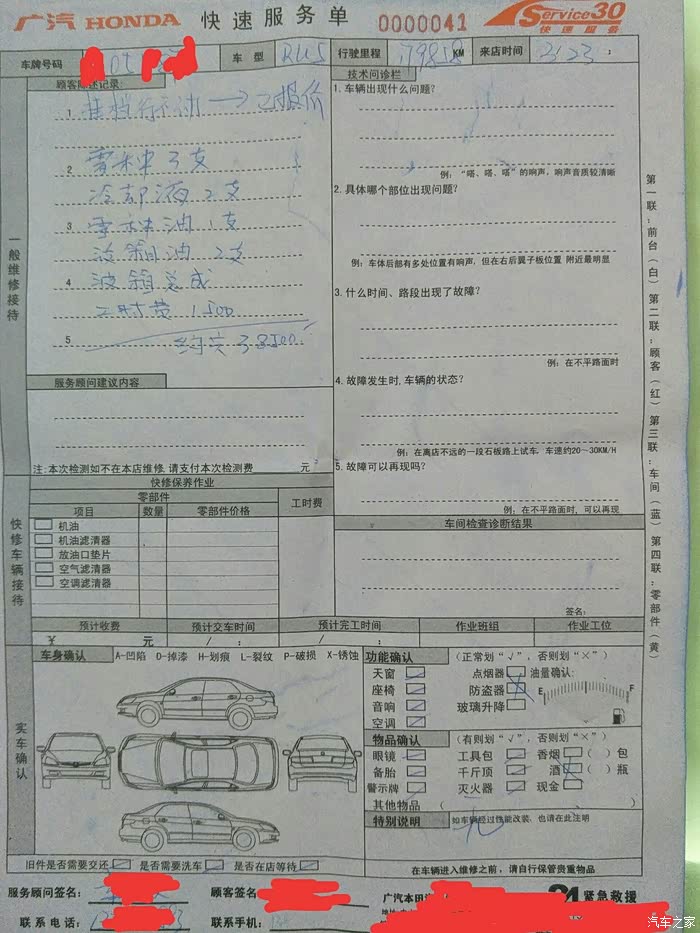 广汽 HONDA 快速服务单 0000041 Service30 快速服务
车牌号码 车型 行驶里程 KM 来店时间 2/23 :
顾客陈述记录:
1. 挂档行不小 → 已报价
2 雪种 3支
冷却液 2支
3 雪种油 1支
波箱油 2支
4 波箱总成
工时费 1500
5
一般维修接待
服务顾问建议内容
注:本次检测如不在本店维修,请支付本次检测费 元
技术问诊栏
1. 车辆出现什么问题?
例:“嗒、嗒、嗒”的响声,响声音质较清晰
2. 具体哪个部位出现问题?
例:车体后部有多处位置有响声,但在右后翼子板位置 附近最明显
3. 什么时间、路段出现了故障?
例:在不平路面时
4. 故障发生时,车辆的状态?
例:在离店不远的一段石板路上试车,车速约20~30KM/H
5. 故障可以再现吗?
例:在不平路面时,可以再现
车间检查诊断结果
签名:
快修车辆接待
快修保养作业
零部件 工时费
项目 数量 零部件价格
机油
机油滤清器
放油口垫片
空气滤清器
空调滤清器
预计收费 预计交车时间 预计完工时间 作业班组 作业工位
¥ 元 / : / :
实车确认
车身确认 A-凹陷 O-掉漆 H-划痕 L-裂纹 P-破损 X-锈蚀
功能确认 (正常划“√”,否则划“×”)
天窗 点烟器 油量确认:
座椅 防盗器 E F
音响 玻璃升降
空调
物品确认 (有则划“√”,否则划“×”)
眼镜 工具包 香烟 ( )包
备胎 千斤顶 酒 ( )瓶
警示牌 灭火器 现金
其他物品 ( )
特别说明 如车辆经过性能改装,也请在此注明
无
旧件是否需要交还 是否需要洗车 是否在店等待
在车辆进入维修之前,请自行保管贵重物品
服务顾问签名: 顾客签名: 广汽本田汽 24 紧急救援
联系电话: 联系手机: 地址:
第一联:前台(白) 第二联:顾客(红) 第三联:车间(蓝) 第四联:零部件(黄)
汽车之家